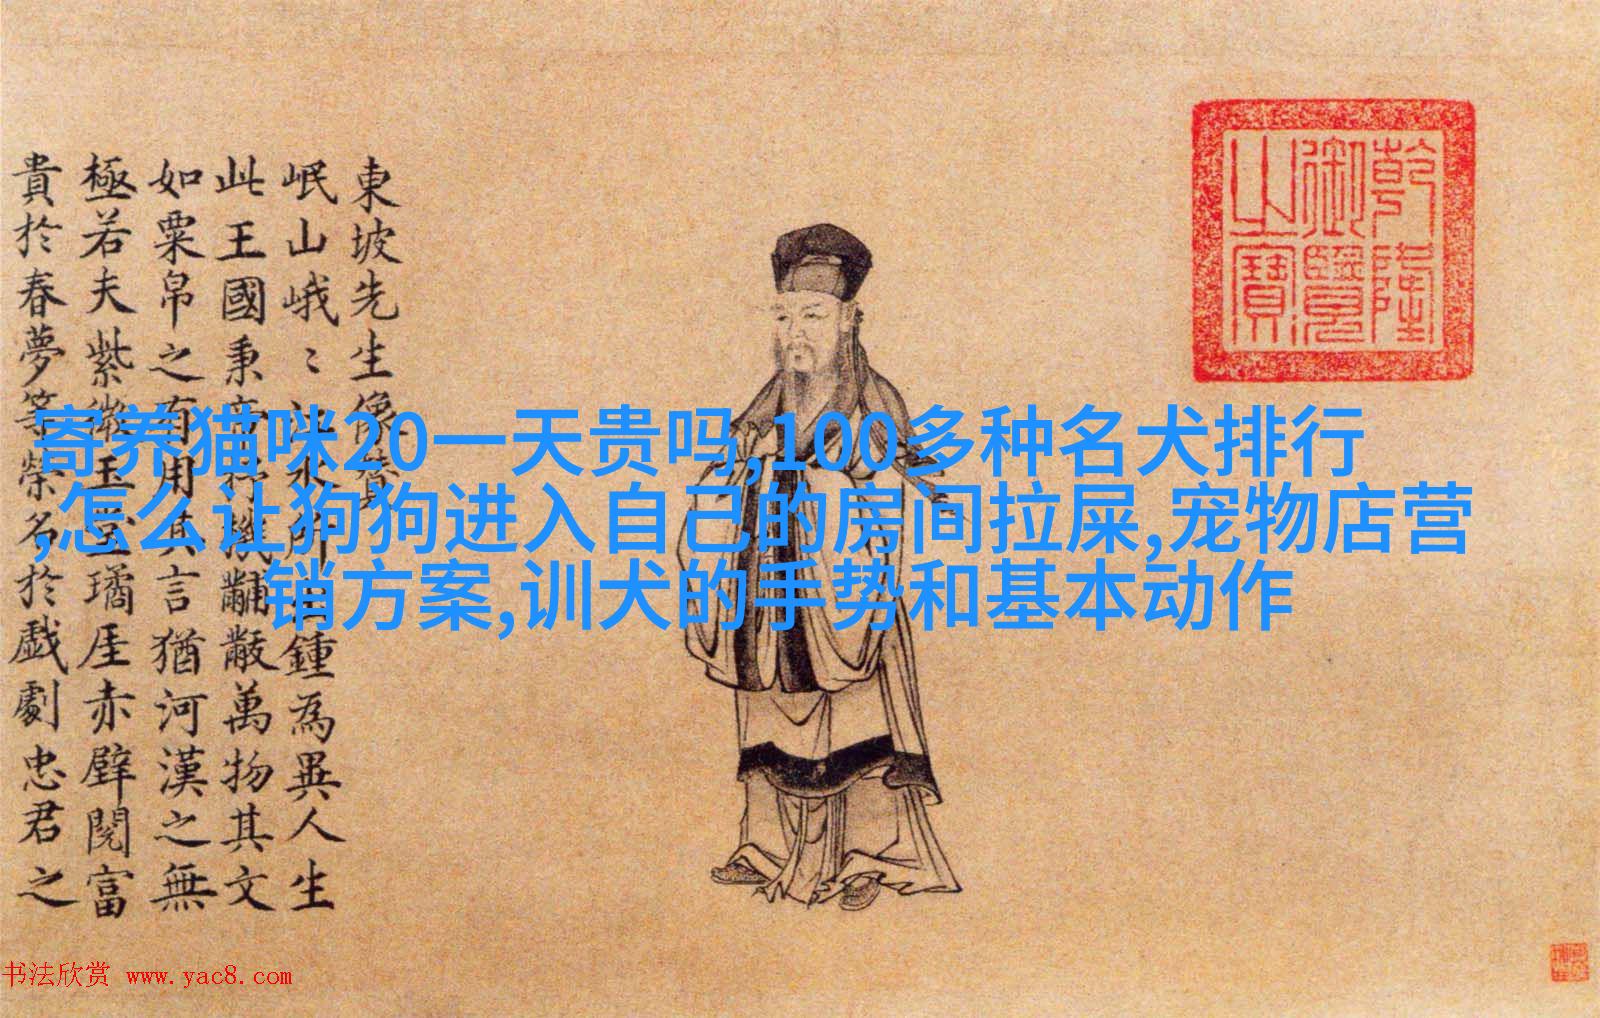 東坡先生像贊
岷山峨〻江水所出鍾為異人生
此王國秉帝杼機黼黻萬物其文
如粟帛之有用其言猶河漢之無
極若夫紫微玉堂璚厓赤壁閱富
貴於春夢等榮名於戲劇忠君之
乾隆
御覽
之寶
寄养猫咪20一天贵吗,100多种名犬排行
,怎么让狗狗进入自己的房间拉屎,宠物店营
销方案,训犬的手势和基本动作
书法欣赏 www.yac8.com